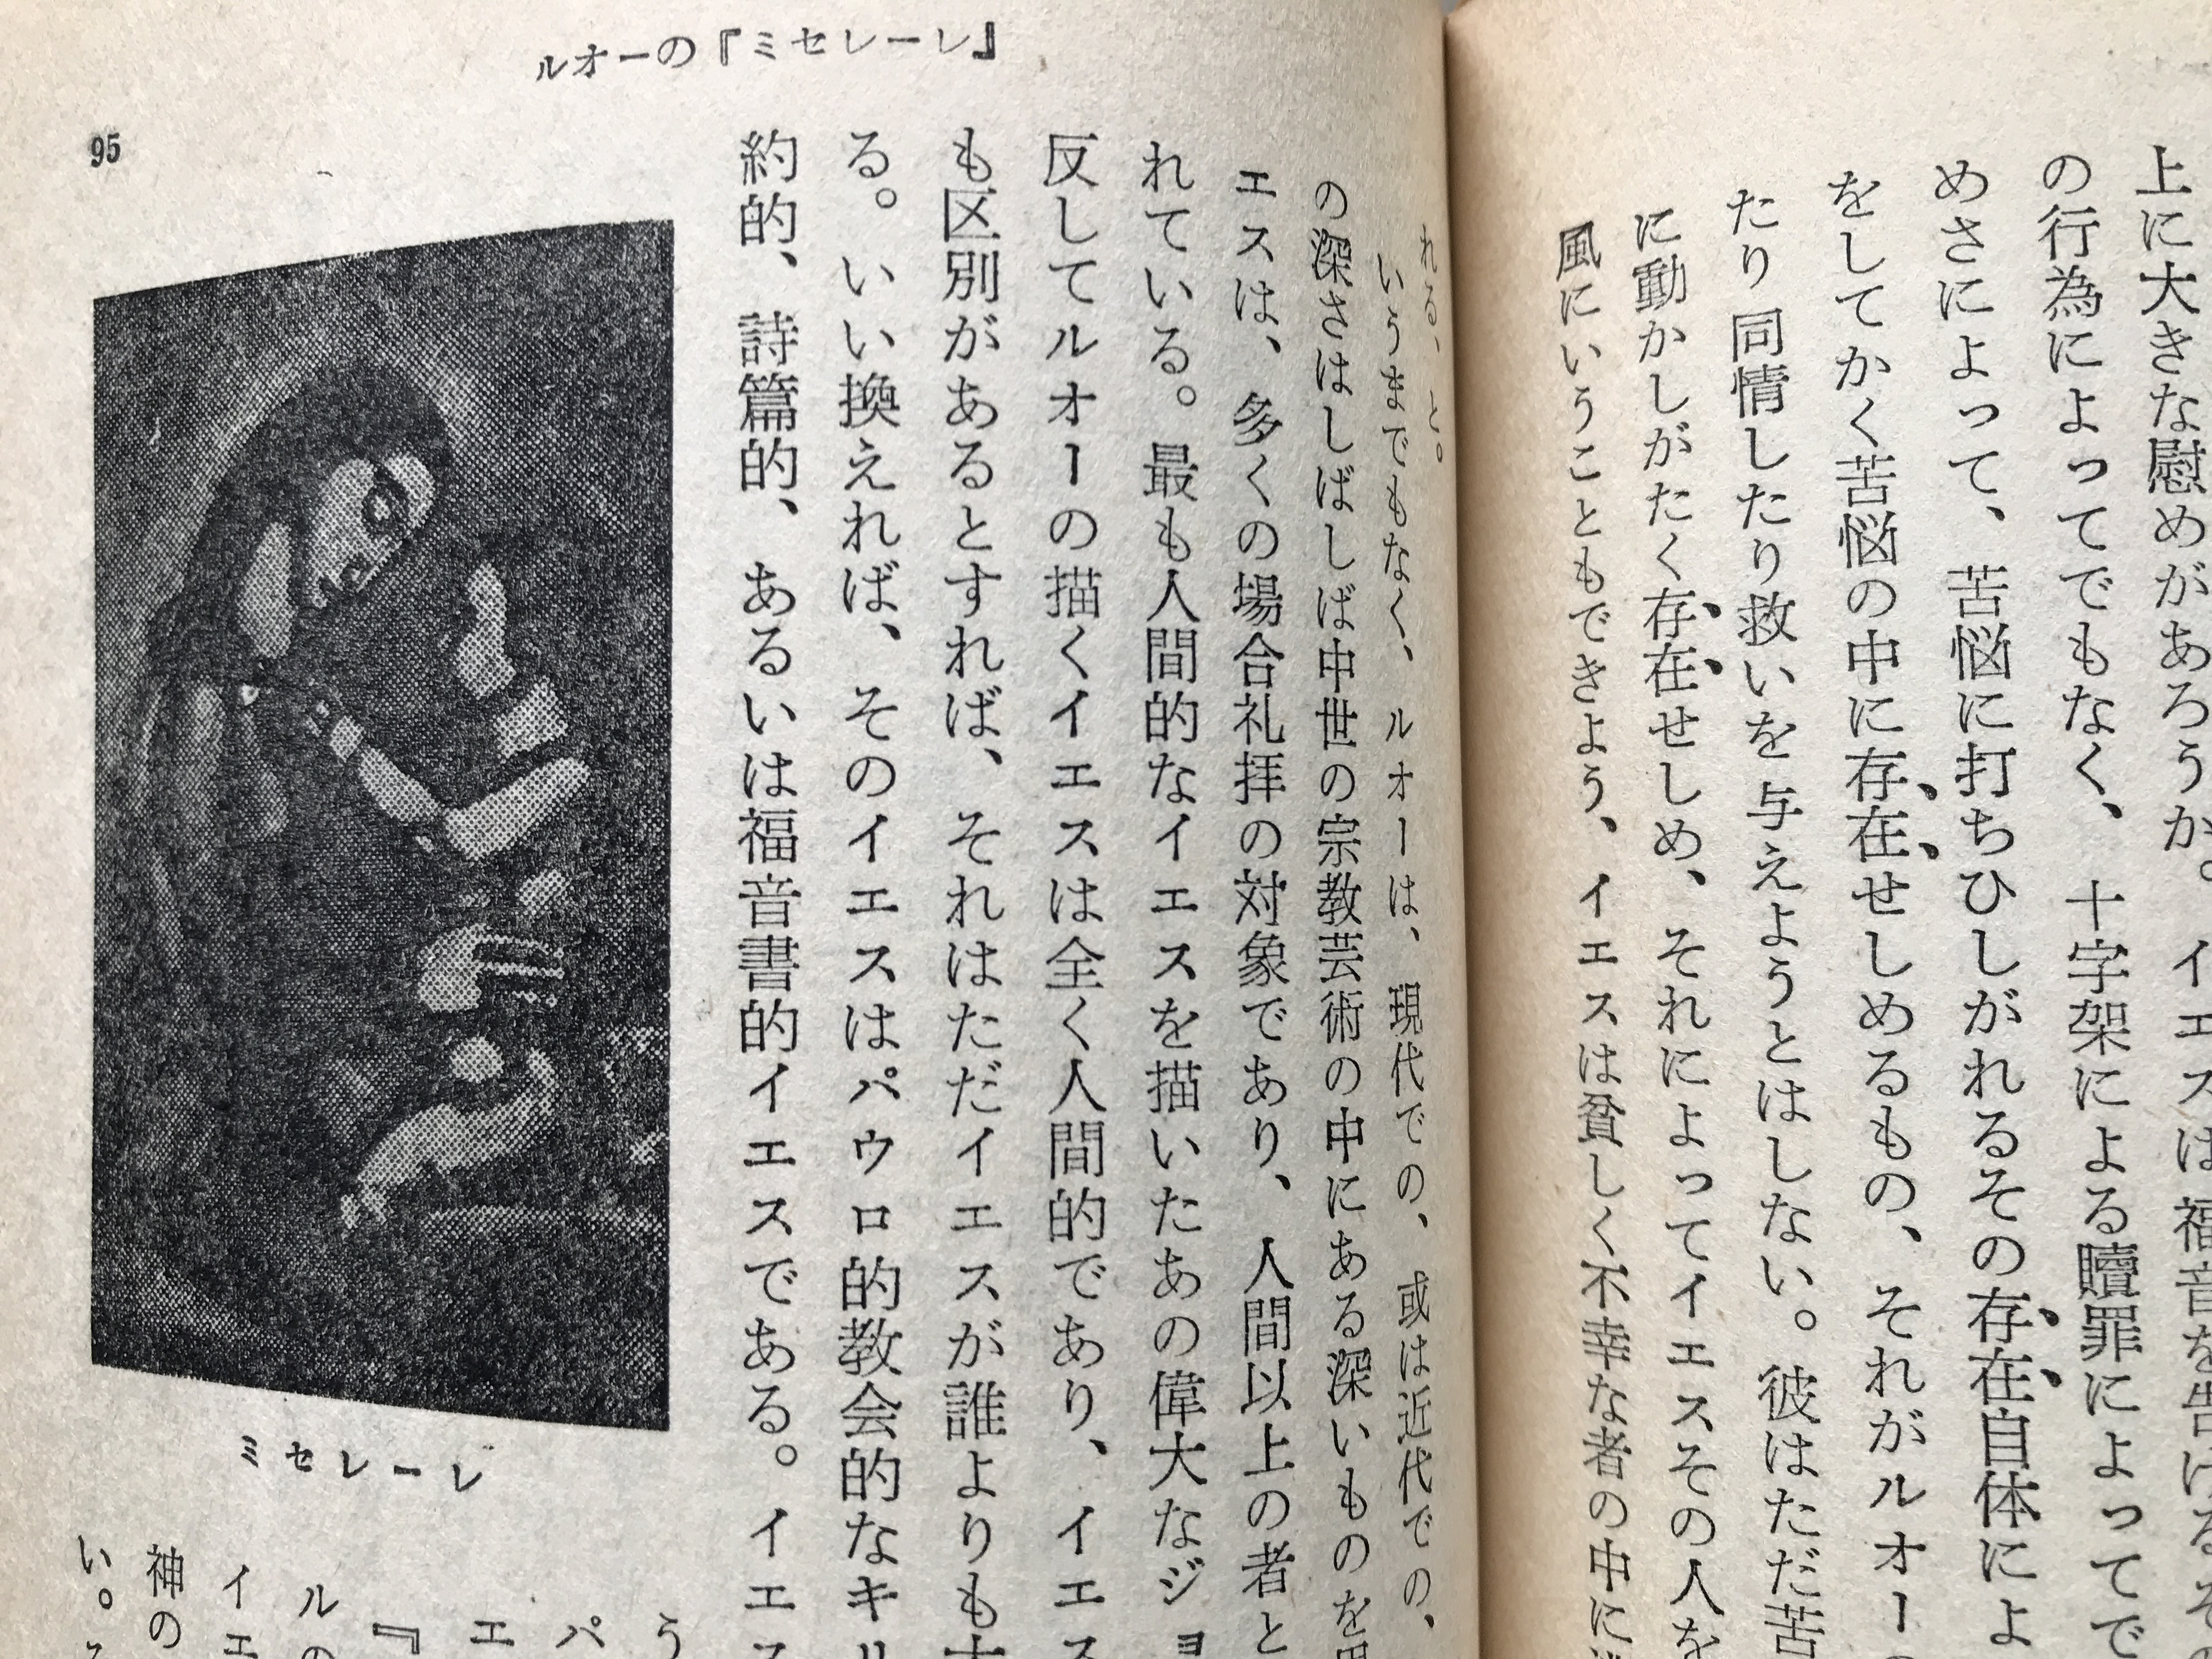 上に大きな慰めがあろうか。イエスは福音を告げるその
の行為によってでもなく、十字架による贖罪によってで
めさによって、苦悩に打ちひしがれるその存在自体によ
をしてかく苦悩の中に存在せしめるもの、それがルオーの
たり同情したり救いを与えようとはしない。彼はただ苦
に動かしがたく存在せしめ、それによってイエスその人を
風にいうこともできよう、イエスは貧しく不幸な者の中に
れる、と。
ルオーの『ミセレーレ』
いうまでもなく、ルオーは、現代での、或は近代での、
の深さはしばしば中世の宗教芸術の中にある深いものを
エスは、多くの場合礼拝の対象であり、人間以上の者と
れている。最も人間的なイエスを描いたあの偉大なジョ
反してルオーの描くイエスは全く人間的であり、イエス
も区別があるとすれば、それはただイエスが誰よりも
る。いい換えれば、そのイエスはパウロ的教会的なキリ
約的、詩篇的、あるいは福音書的イエスである。イエス
う
パ
エ
『
ルの
イエ
神の
い。
ミセレーレ
95